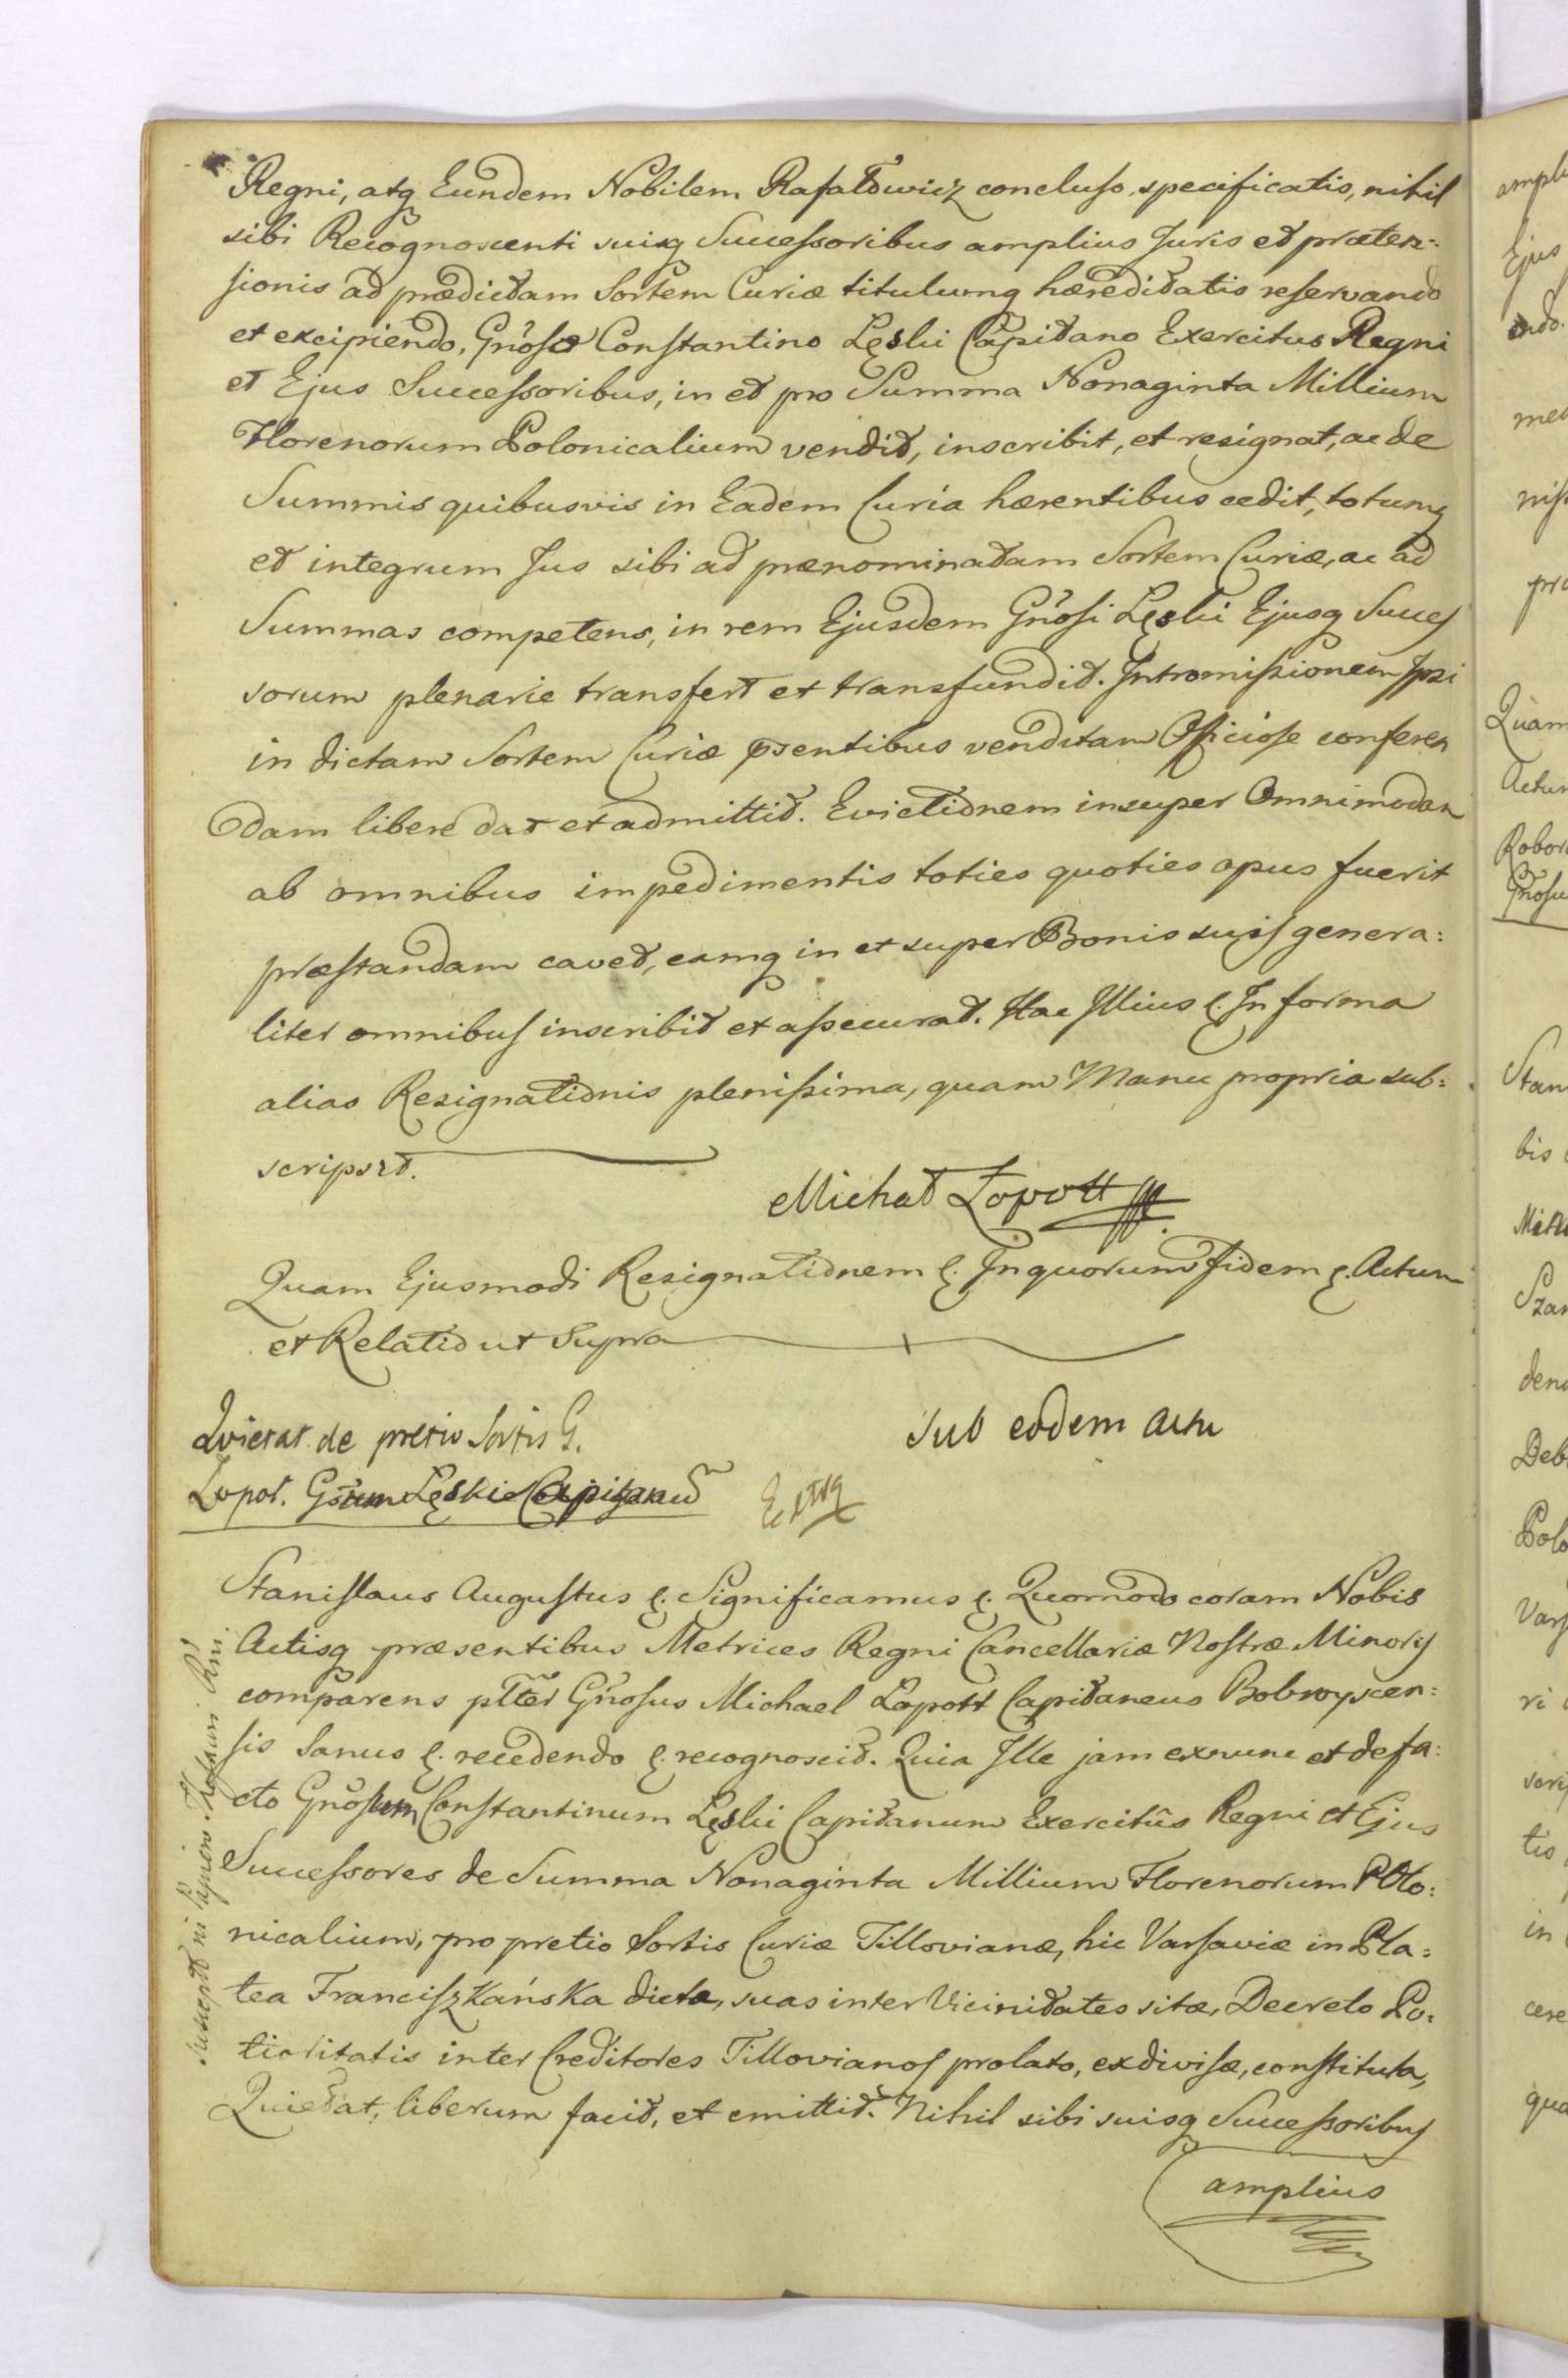 Regni, atq Eundem Nobilem Rafałowicz concluso, specificatis, nihil
sibi Recognoscenti suisq Successoribus amplius Juris et præten=
sionis ad prædictam Sortem Curiæ titulumq hæreditatis reservando
et excipiendo, Gnoso Constantino Lęski Capitano Exercitus Regni
et Ejus Successoribus, in et pro Summa Nonaginta Millium
Florenorum Polonicalium vendit, inscribit, et resignat, ac de
Summis quibusvis in Eadem Curia hærentibus cedit, totumq
et integrum Jus sibi ad prænominatam Sortem Curiæ, ac ad
Summas competens, in rem Ejusdem Gnosi Lęski Ejusq Succes
sorum plenarie transfert et transfundit. Intromissionem Ipsi
in dictam Sortem Curiæ psentibus venditam Officiose conferen
dam libere dat et admittit. Evictionem insuper Omnimodam
ab omnibus impedimentis toties quoties opus fuerit
præstandam cavet, eamq in et super Bonis suis genera=
liter omnibus inscribit et assecurat. Hac Illius &. In forma
alias Resignationis plenissima, quam Manu propria sub=
scripsit.
Michał Łopott
Quam Ejusmodi Resignationem &. In quorum fidem &. Actum
et Relatio ut Supra
Quietat. de pretio Sortis G.
Sub eodem Actu
Łopot. Gsum Lęski Capitaneu
Extrq
Stanislaus Augustus &. Significamus &. Quomodo coram Nobis
Actisq præsentibus Metrices Regni Cancellariæ Nostræ Minoris
comparens plter Gnosus Michael Łopott Capitaneus Bobroyscen=
sis Sanus &. recedendo &. recognoscit. Quia Ille jam exnunc et defa=
cto Gnosum Constantinum Lęski Capitanum Exercitûs Regni et Ejus
Successores de Summa Nonaginta Millium Florenorum Polo=
nicalium, pro pretio Sortis Curiæ Tillovianæ, hic Varsaviæ in Pla=
tea Franciszkańska dicta, suas inter Vicinitates sitæ, Decreto Po=
tioritatis inter Creditores Tillovianos prolato, exdivisæ, constituta,
Quietat, liberum facit, et emittit. Nihil sibi suisq Successoribus
amplius